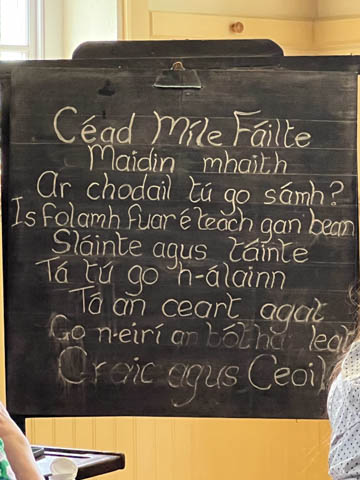 Céad Míle Fáilte
Maidin mhaith
Ar chodail tú go sámh?
Is folamh fuar é teach gan bean
Sláinte agus táinte
Tá tú go h-álainn
Tá an ceart agat
Go n-eirí an bóthar leat
Craic agus Ceoil